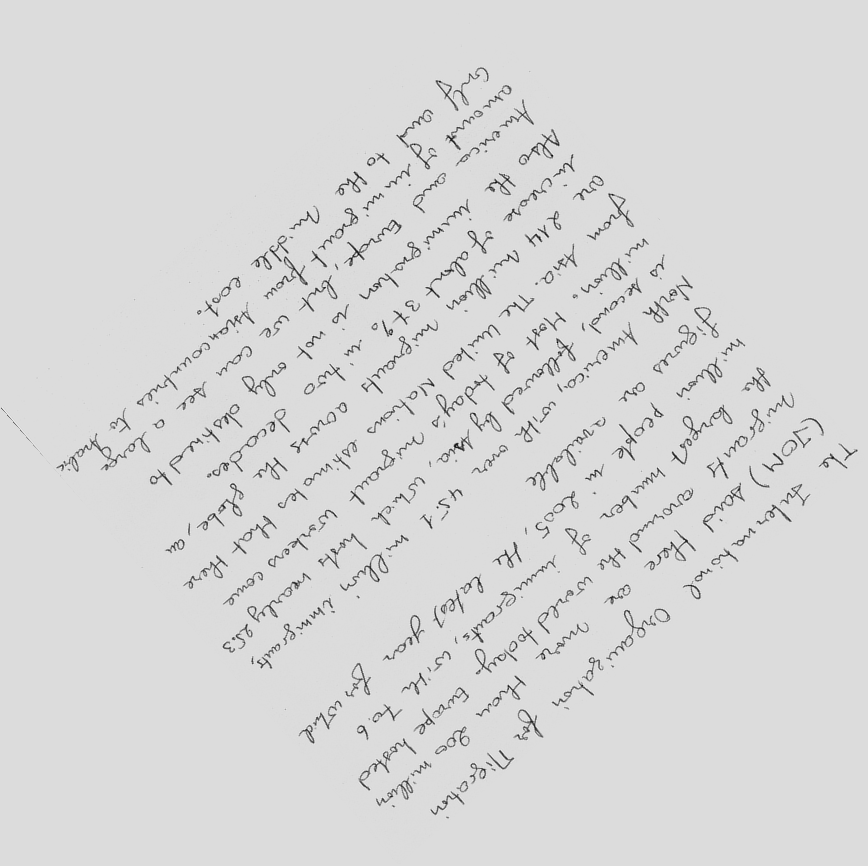 The International Organization for Migration
(IOM) said there are more than 200 million
migrants around the world today. Europe hosted
the largest number of immigrants, with 70.6
million people in 2005, the latest year for which
figures are available
North America, with over 45.1 million immigrants,
is second, followed by Asia, which hosts nearly 25.3
million. Most of today's migrant workers come
from Asia. The United Nations estimates that there
are 214 million migrants across the globe, an
increase of about 37% in two decades.
Also the immigration is not only destined to
America and Europe, but we can see a large
amount of immigrant from Asian countries to Arabic
only and to the middle east.